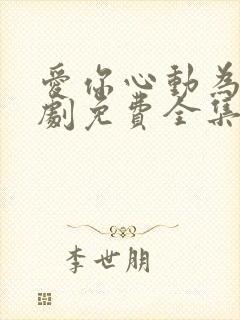 愛你心動為
劇免費全集
李世朋